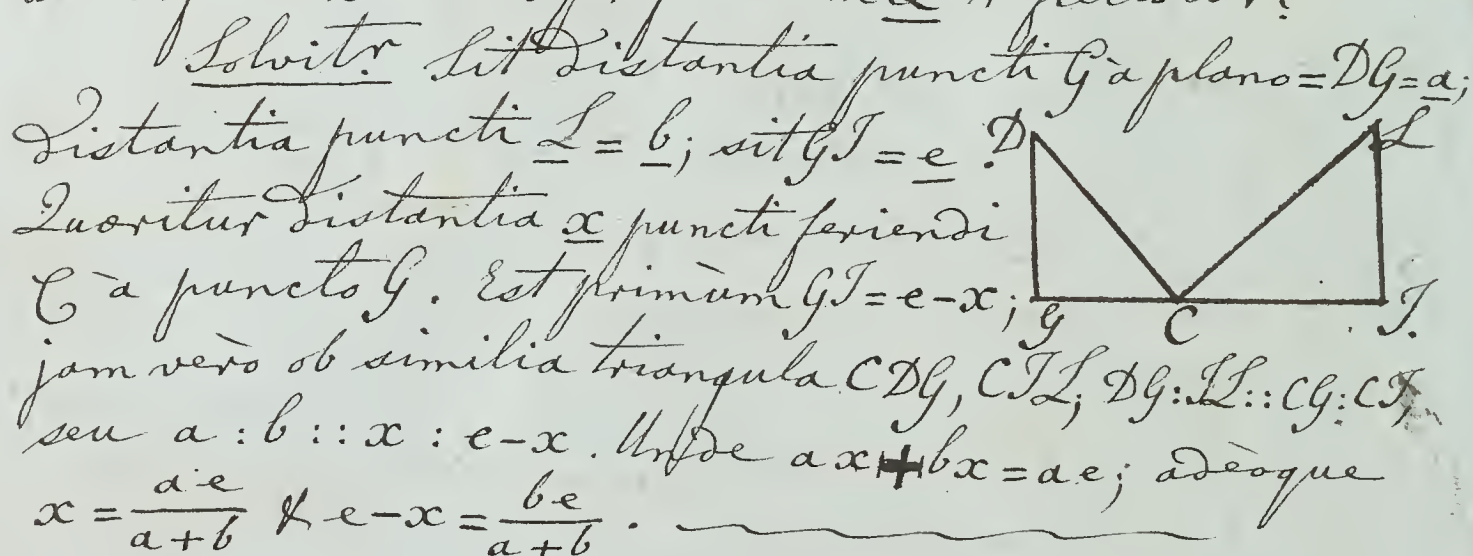 Solvitr. Sit distantia puncti G à plano = DG = a;
distantia puncti L = b; sit GI = e.
D L
Quæritur distantia x puncti feriendi
C à puncto G. Est primùm GI = e-x;
G C I.
jam verò ob similia triangula CDG, CIL; DG:IL::CG:CI,
seu a : b : : x : e-x. Unde ax+bx = ae; adèoque
x = ae/a+b & e-x = be/a+b.